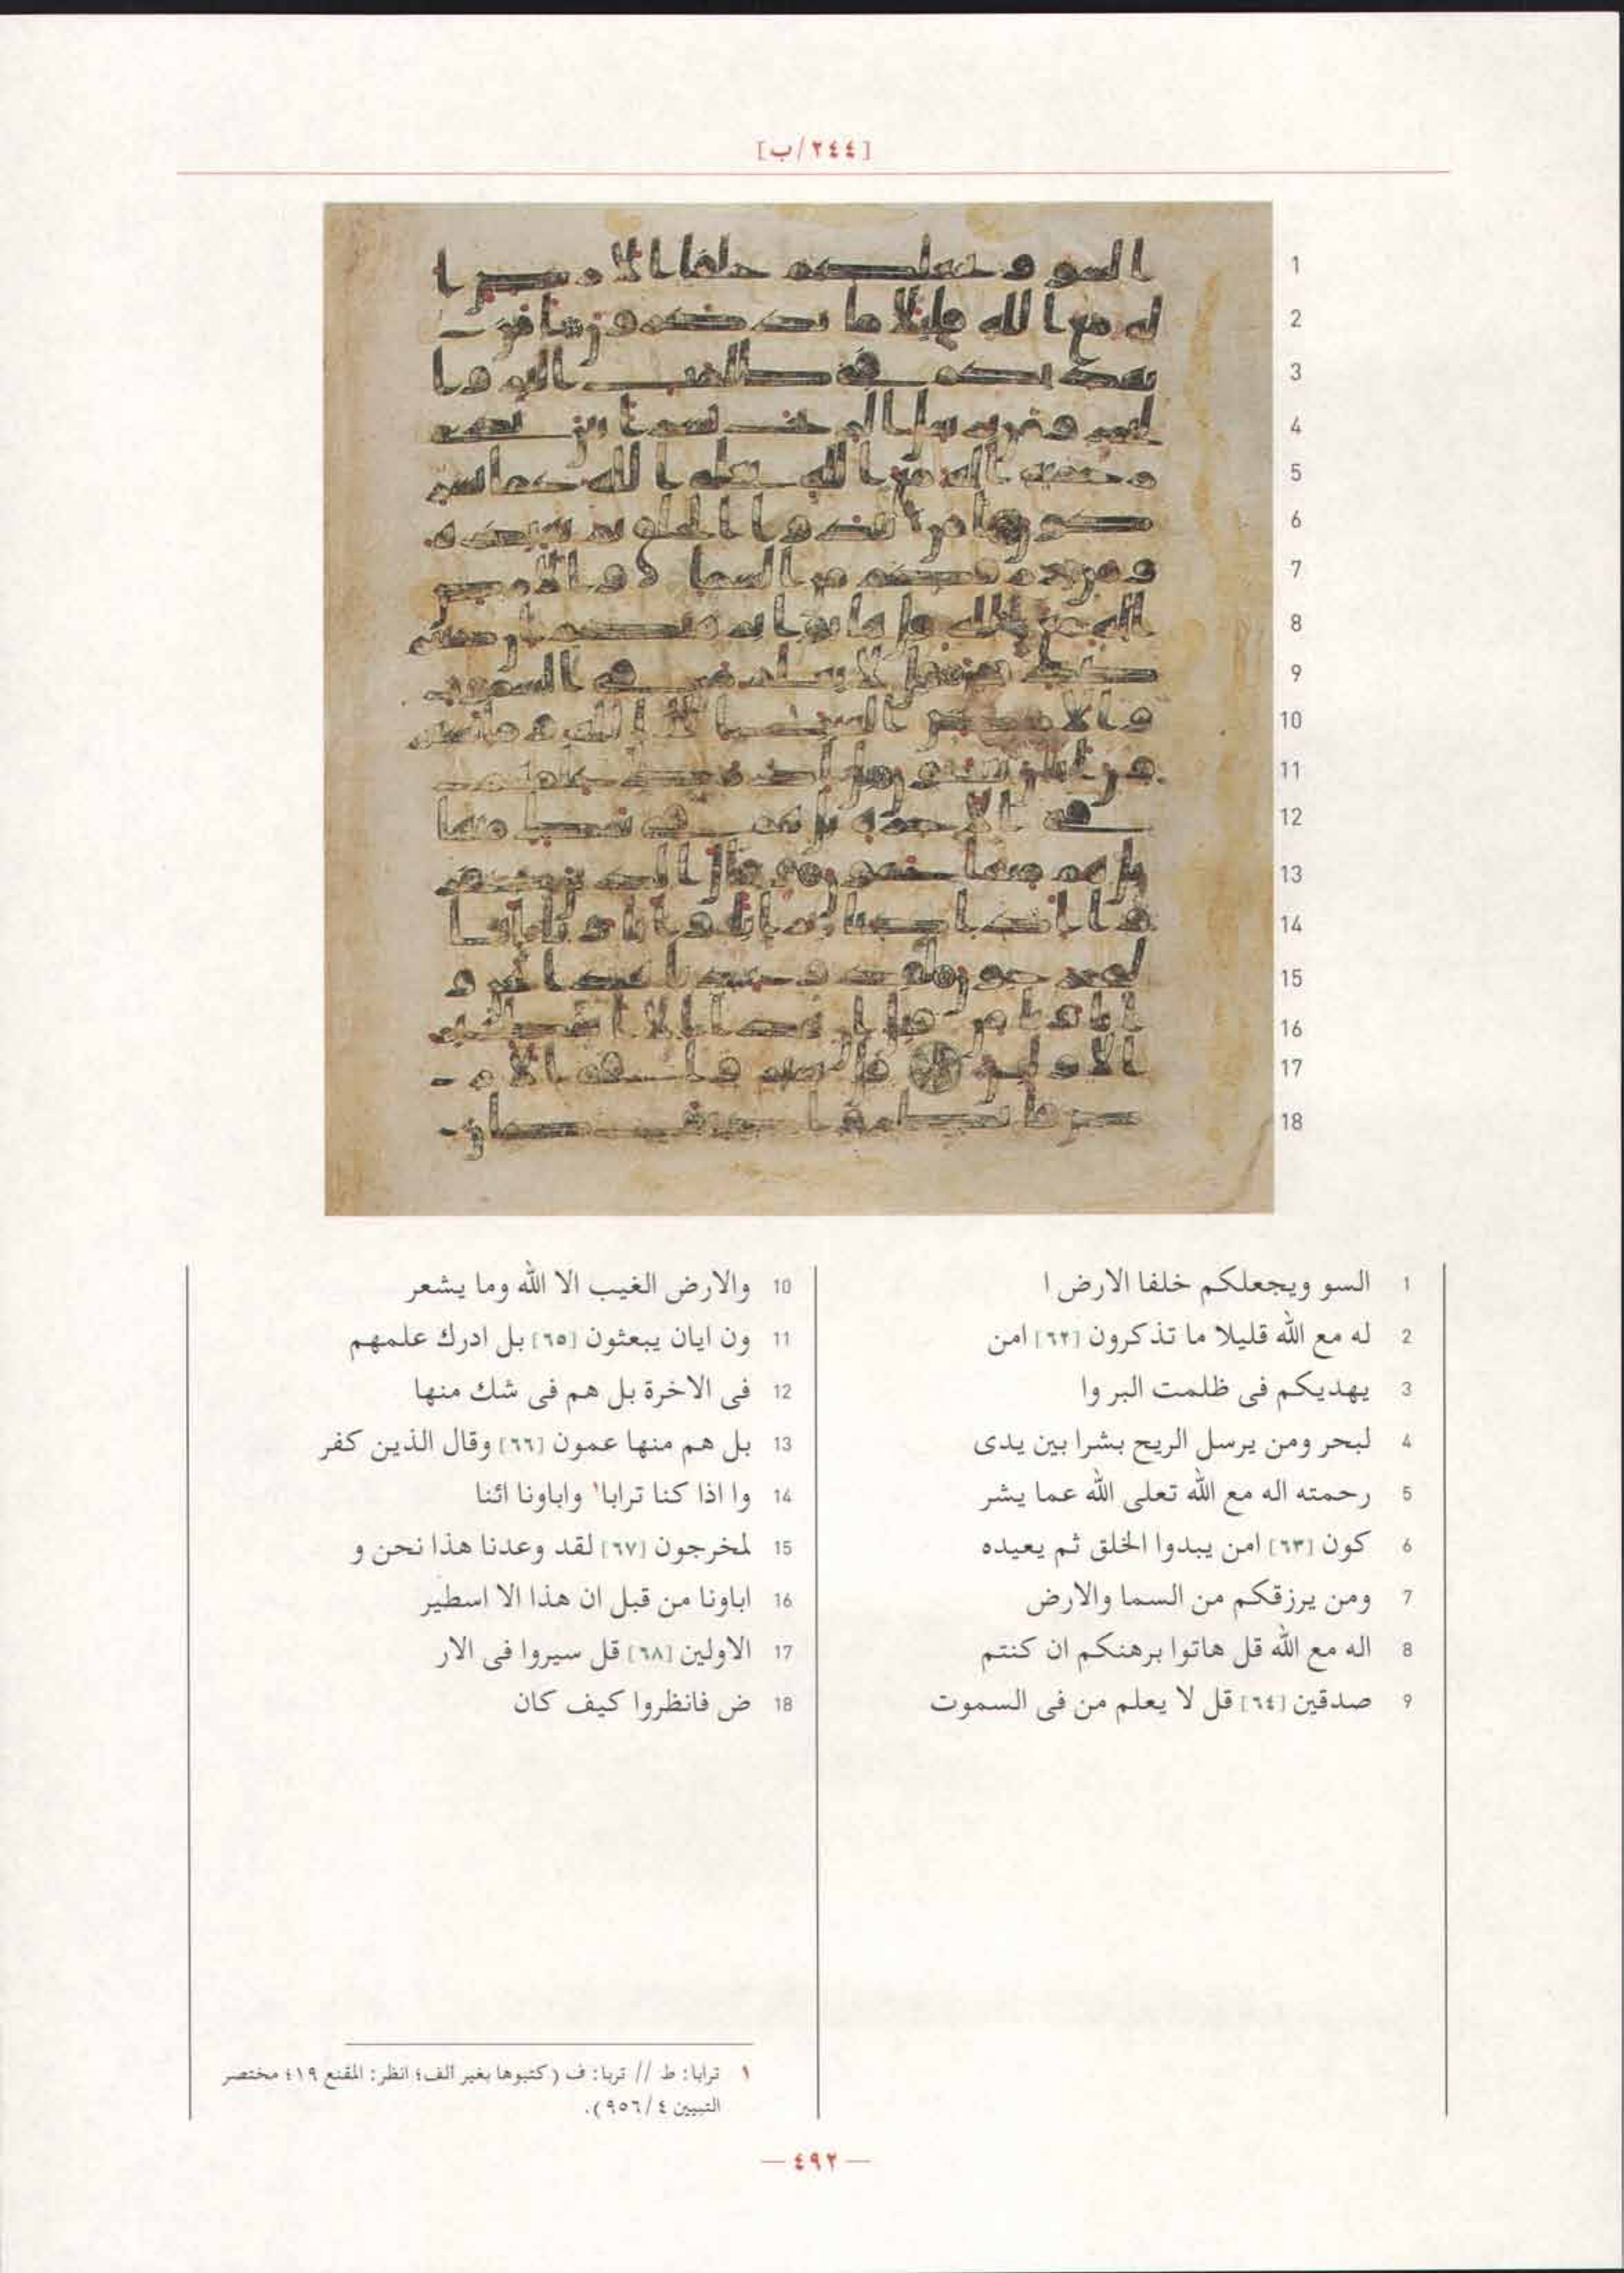 [٢٤٤/ب]
1 السو ويجعلكم خلفا الارض ا
2 له مع الله قليلا ما تذكرون [٦٢] امن
3 يهديكم فى ظلمت البر وا
4 لبحر ومن يرسل الريح بشرا بين يدى
5 رحمته اله مع الله تعلى الله عما يشر
6 كون [٦٣] امن يبدوا الخلق ثم يعيده
7 ومن يرزقكم من السما والارض
8 اله مع الله قل هاتوا برهنكم ان كنتم
9 صدقين [٦٤] قل لا يعلم من فى السموت
10 والارض الغيب الا الله وما يشعر
11 ون ايان يبعثون [٦٥] بل ادرك علمهم
12 فى الاخرة بل هم فى شك منها
13 بل هم منها عمون [٦٦] وقال الذين كفر
14 وا اذا كنا ترابا١ واباونا ائنا
15 لمخرجون [٦٧] لقد وعدنا هذا نحن و
16 اباونا من قبل ان هذا الا اسطير
17 الاولين [٦٨] قل سيروا فى الار
18 ض فانظروا كيف كان
١ ترابا: ط // تربا: ف (كتبوها بغير الف؛ انظر: المقنع ١٩؛ مختصر
التبيين ٤/٩٥٦).
— ٤٩٢ —